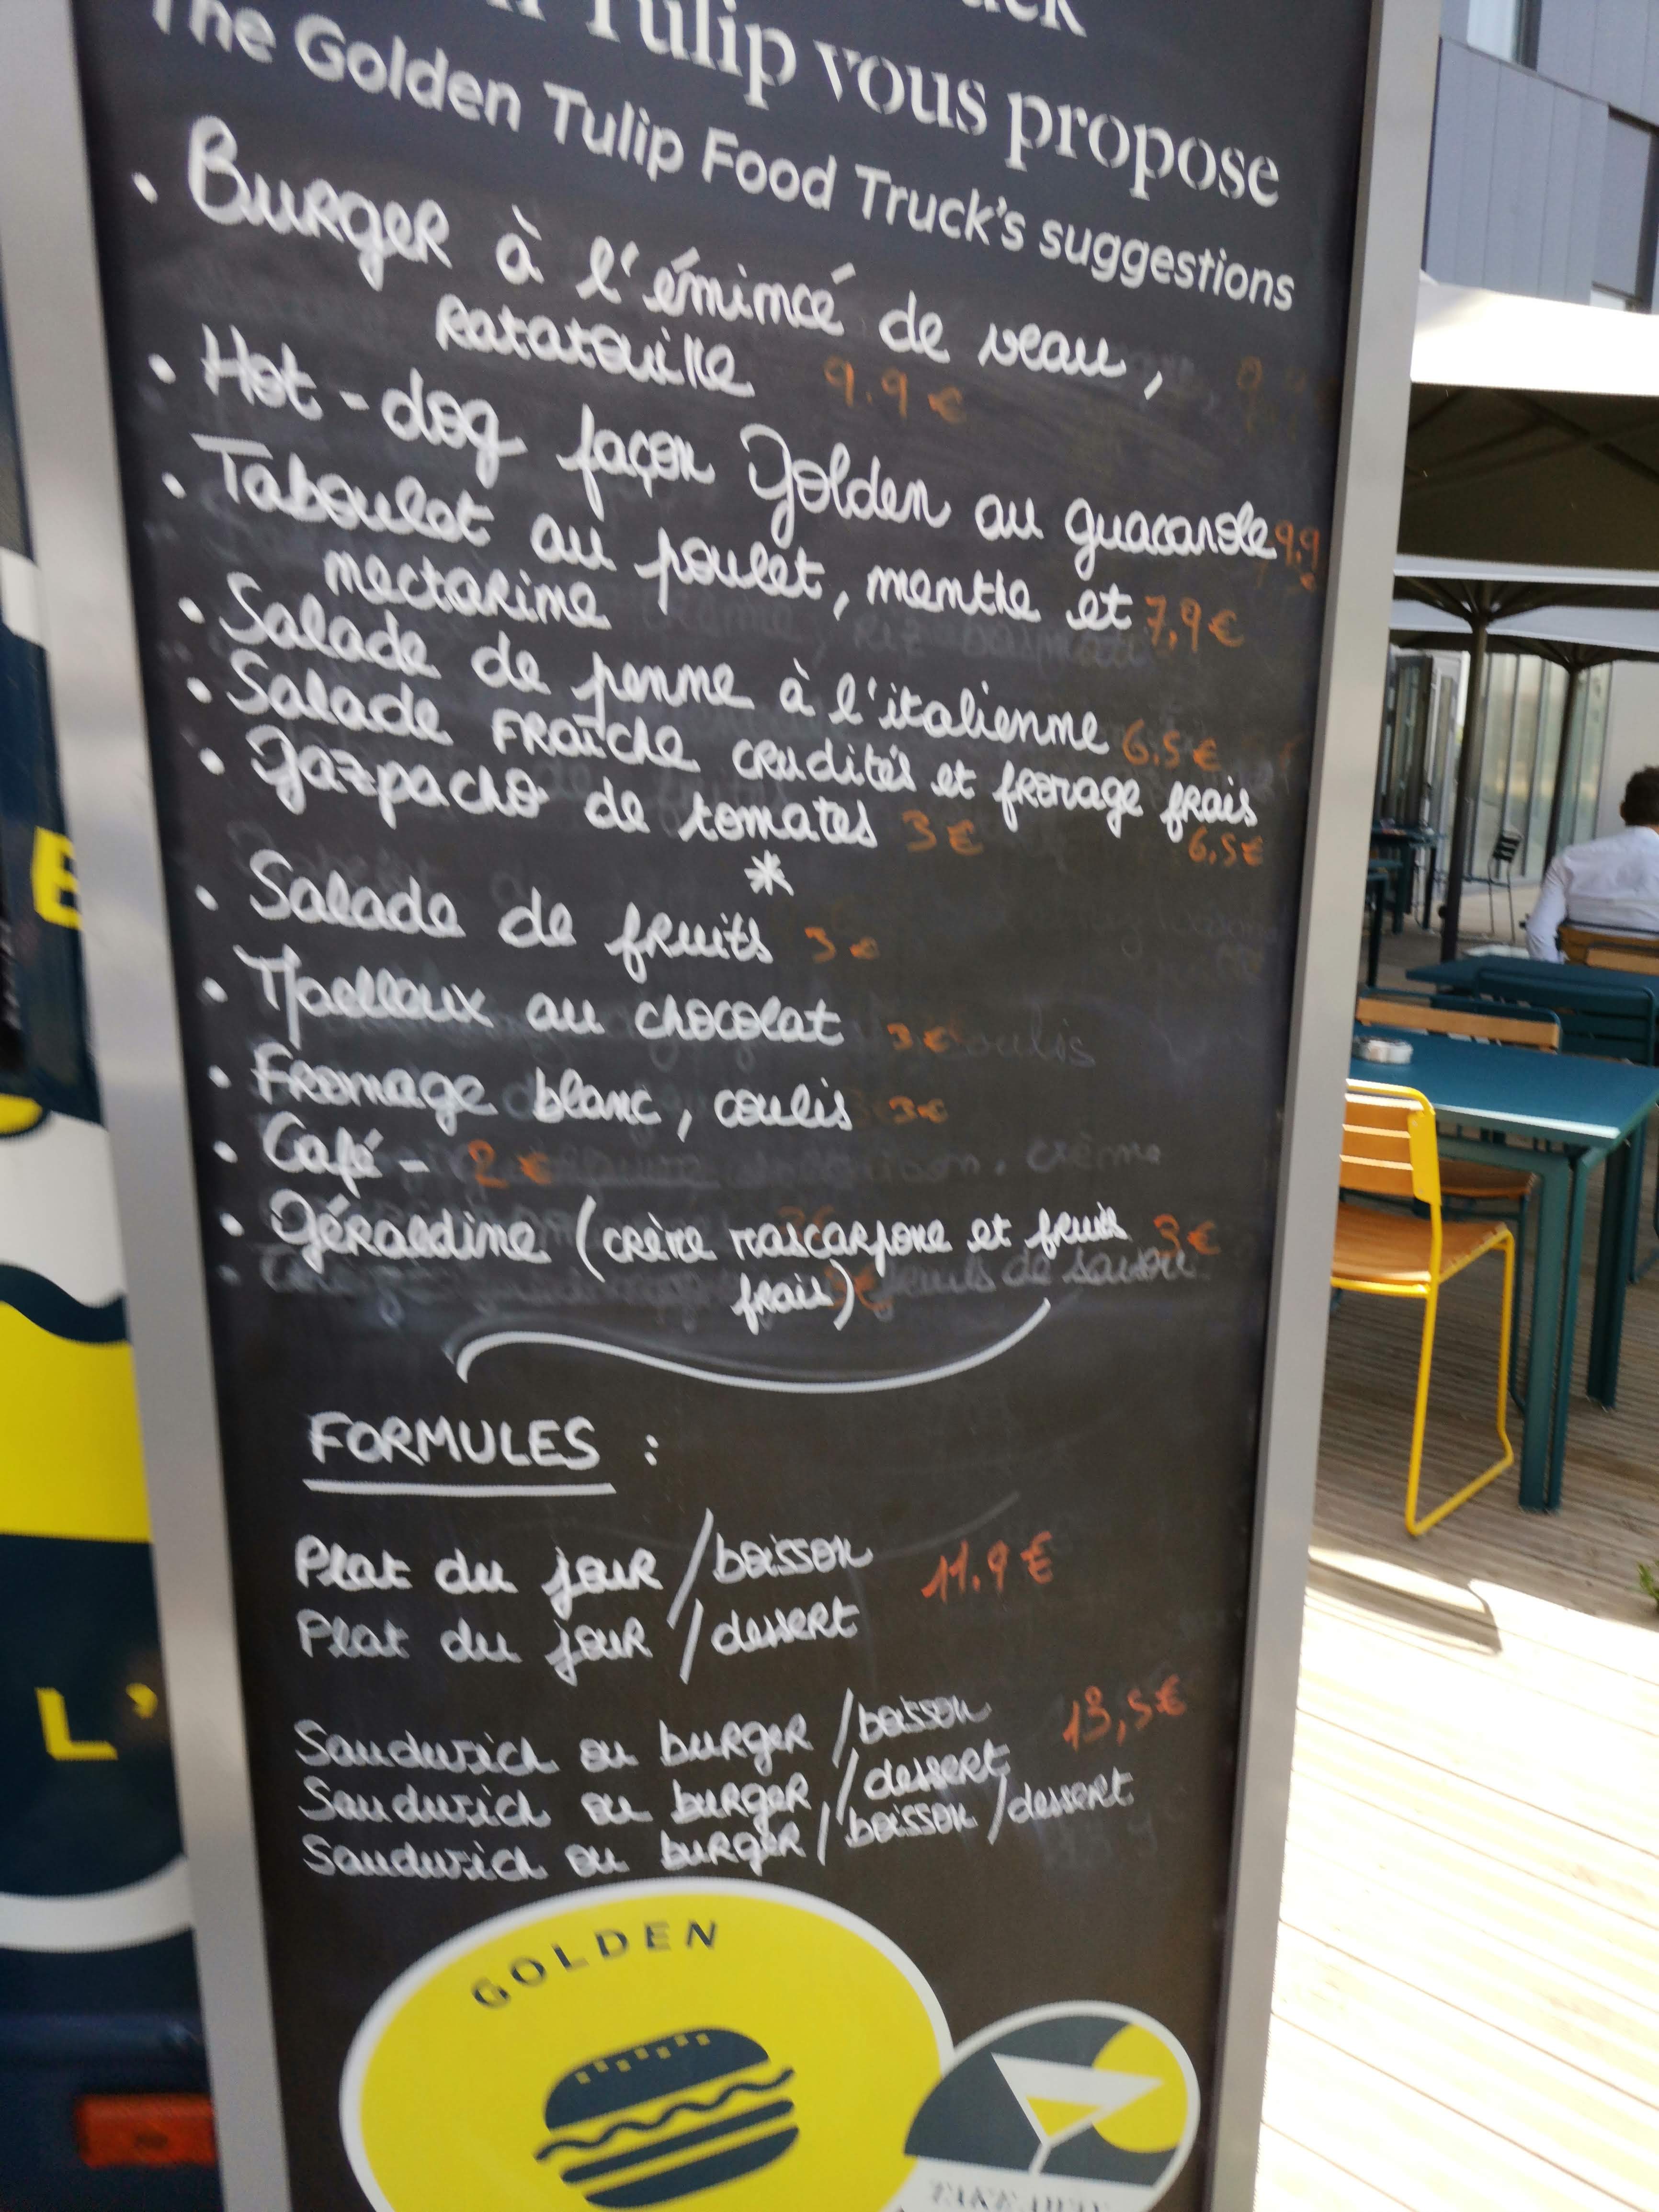 Tulip vous propose
The Golden Tulip Food Truck's suggestions
• Burger à l'émincé de veau,
Ratatouille 9.9 €
• Hot-dog façon Golden au guacamole 9,9
€
• Taboulet au poulet, menthe et 7,9 €
nectarine
• Salade de penne à l'italienne 6,5 €
• Salade fraîche crudités et fromage frais
6,5 €
• Gazpacho de tomates 3 €
*
• Salade de fruits 3 €
• Maelleux au chocolat 3 €
coulis
• Fromage blanc, coulis 3 €
• Café - 2 €
• Géraldine (crème mascarpone et fruits 3 €
frais)
FORMULES :
Plat du jour / boisson 11.9 €
Plat du jour / dessert
Sandwich ou burger / boisson 13,5 €
Sandwich ou burger / dessert
Sandwich ou burger / boisson / dessert
GOLDEN
TAKE AWAY
L'